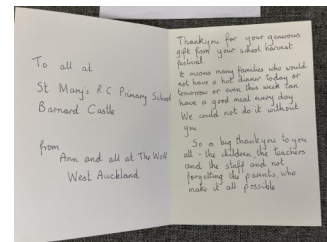 To all at
St Mary's R.C Primary School
Barnard Castle
from
Ann and all at The Well
West Auckland
Thankyou for your generous
gift from your school harvest
festival
It means many families who would
not have a hot dinner today or
tomorrow or even this week can
have a good meal every day
We could not do it without
you
So a big thankyou to you
all - the children, the teachers
and the staff and not
forgetting the parents, who
make it all possible